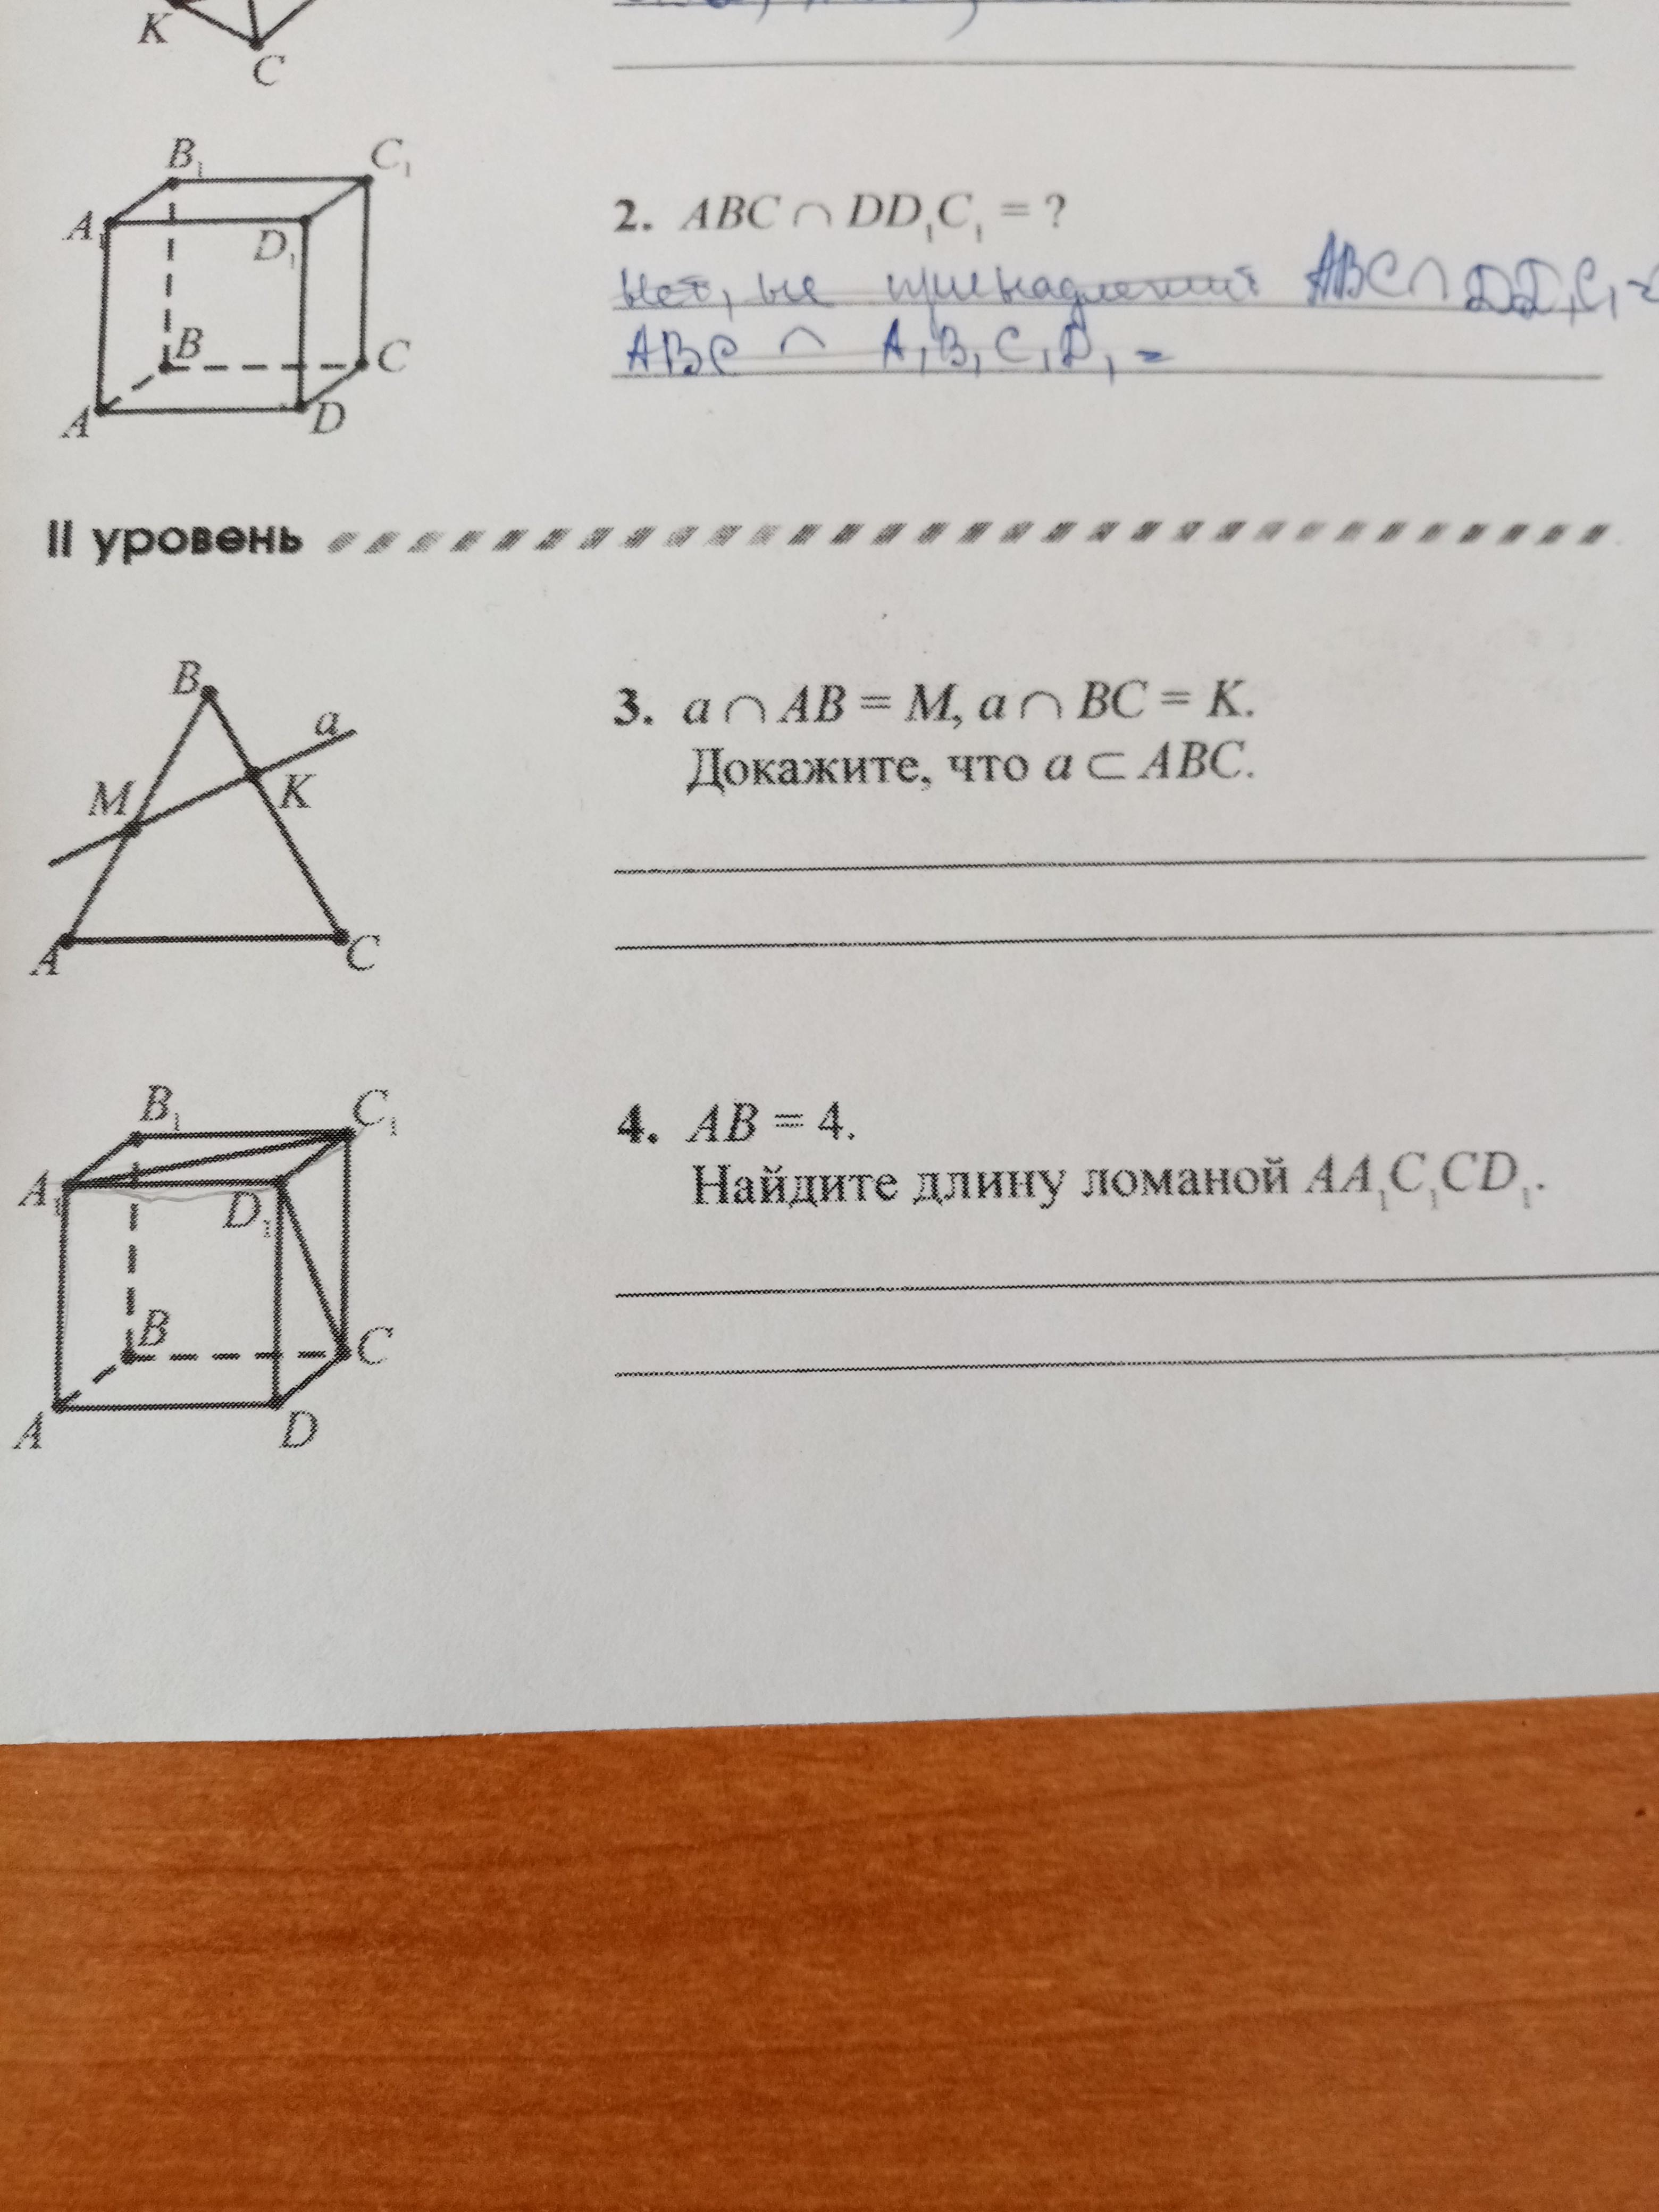 K
C
B₁ C₁
A₁ D₁
B C
A D
2. ABC ∩ DD₁C₁ = ?
нет, не ABC ∩ DD₁C₁ =
ABC ∩ A₁B₁C₁D₁ =
II уровень
B
a
M K
A C
3. a ∩ AB = M, a ∩ BC = K.
Докажите, что a ⊂ ABC.
B₁ C₁
A₁ D₁
B C
A D
4. AB = 4.
Найдите длину ломаной AA₁C₁CD₁.